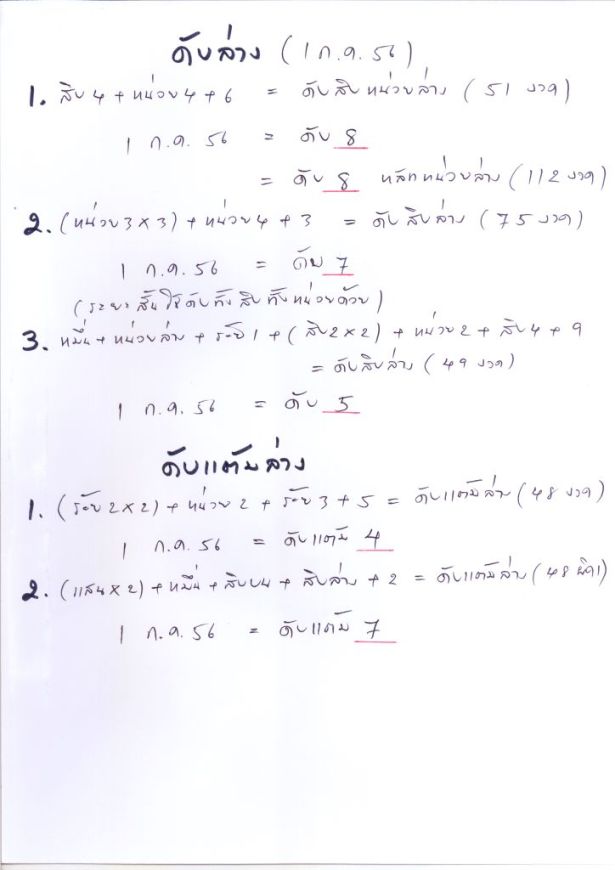 ดับล่าง (1 ก.ค. 56)
1. สิบ 4 + หน่วย 4 + 6 = ดับสิบหน่วยล่าง (51 งวด)
1 ก.ค. 56 = ดับ 8
= ดับ 8 หลักหน่วยล่าง (112 งวด)
2. (หน่วย 3 x 3) + หน่วย 4 + 3 = ดับสิบล่าง (75 งวด)
1 ก.ค. 56 = ดับ 7
(ระยะสั้นใช้ดับทั้งสิบทั้งหน่วยด้วย)
3. หมื่น + หน่วยล่าง + ร้อย 1 + (สิบ 2 x 2) + หน่วย 2 + สิบ 4 + 9
= ดับสิบล่าง (49 งวด)
1 ก.ค. 56 = ดับ 5
ดับแต้มล่าง
1. (ร้อย 2 x 2) + หน่วย 2 + ร้อย 3 + 5 = ดับแต้มล่าง (48 งวด)
1 ก.ค. 56 = ดับแต้ม 4
2. (แสน x 2) + หมื่น + สิบบน + สิบล่าง + 2 = ดับแต้มล่าง (48
1 ก.ค. 56 = ดับแต้ม 7